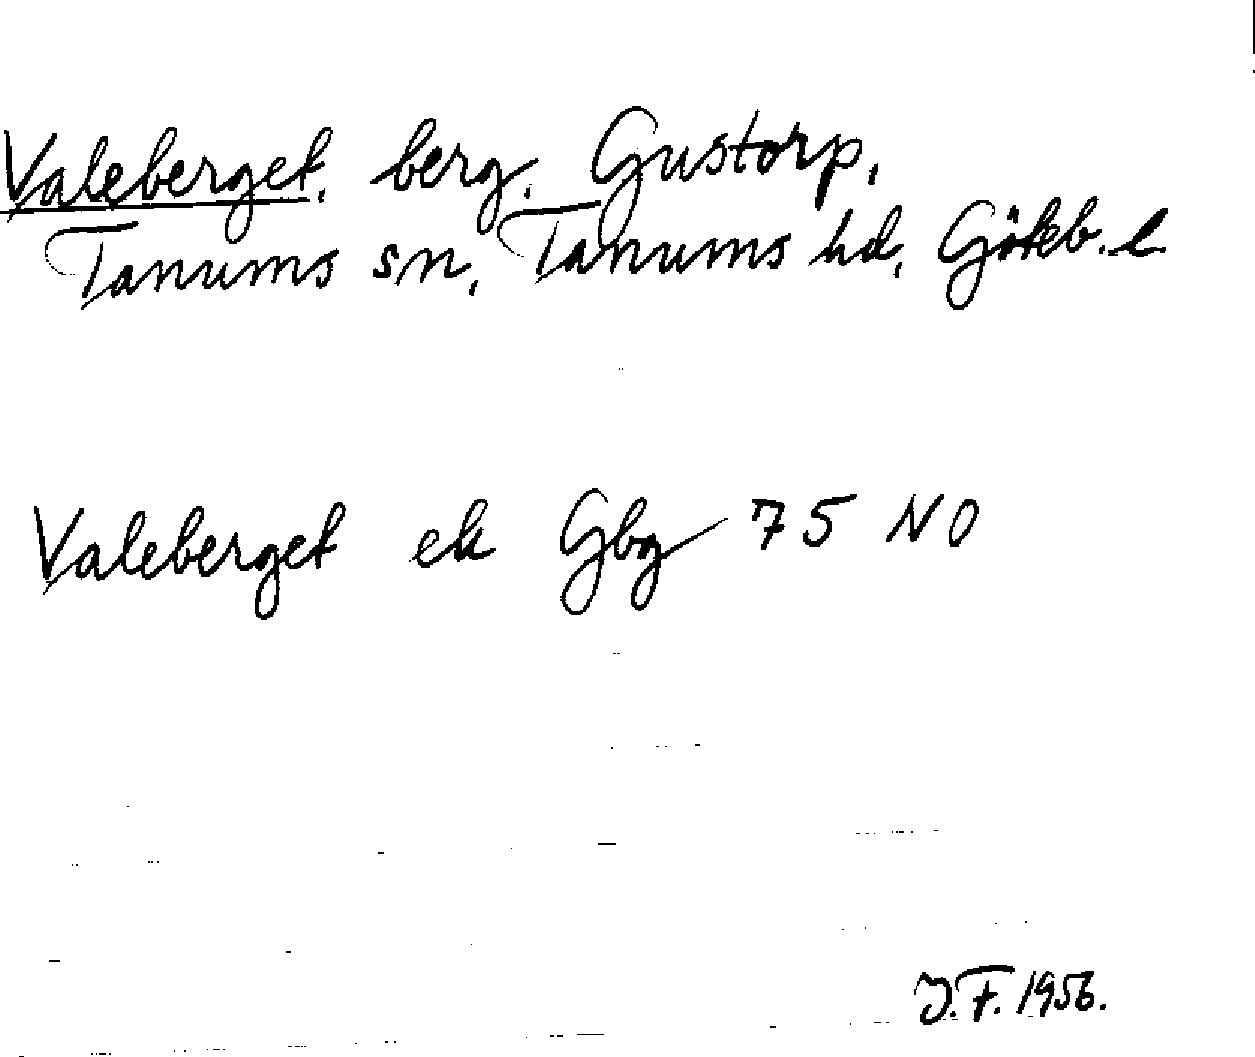 Valeberget, berg, Gustorp,
Tanums sn, Tanums hd, Göteb. l
Valeberget ek Gbg 75 NO
J.F. 1956.